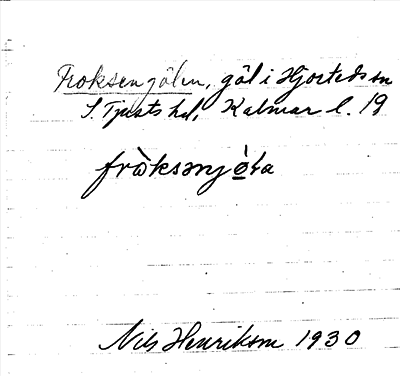 Froksengölen, göl i Hjorteds sn
S. Tjusts hd, Kalmar l. 19
fròksənjö̀la
Nils Henrikson 1930